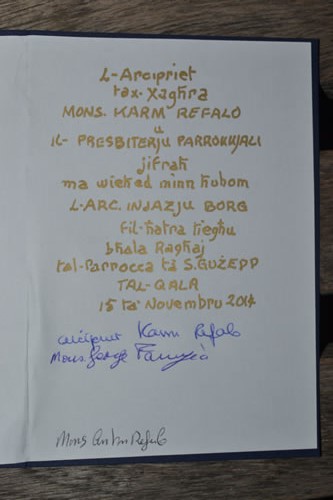 L-Arcipriet
tax-Xagħra
MONS. KARM REFALO
u
IL-PRESBITERJU PARROKKJALI
jifraħ
ma wieħed minn ħubom
L-ARC. INJAZJU BORG
fil-ħatra tiegħu
bħala Ragħaj
tal-Parrocca ta S. ĠUŻEPP
TAL-QALA
15 ta' Novembru 2014
Karm Refalo
Mons.
Mons Refalo